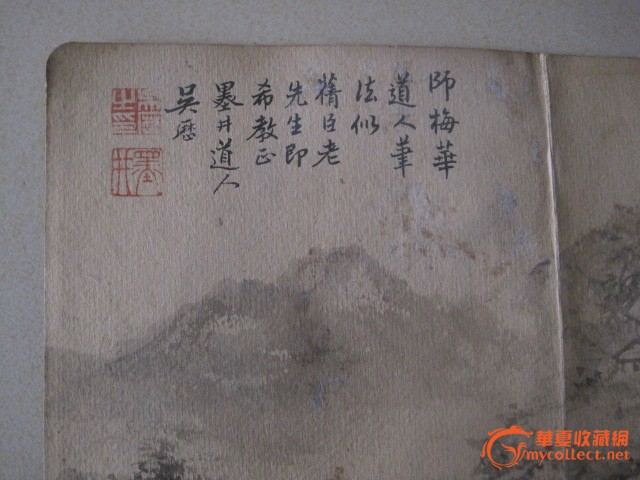 師梅華
道人筆
法似
蒨臣老
先生即
希教正
墨井道人
吳歷
華夏收藏網
mycollect.net